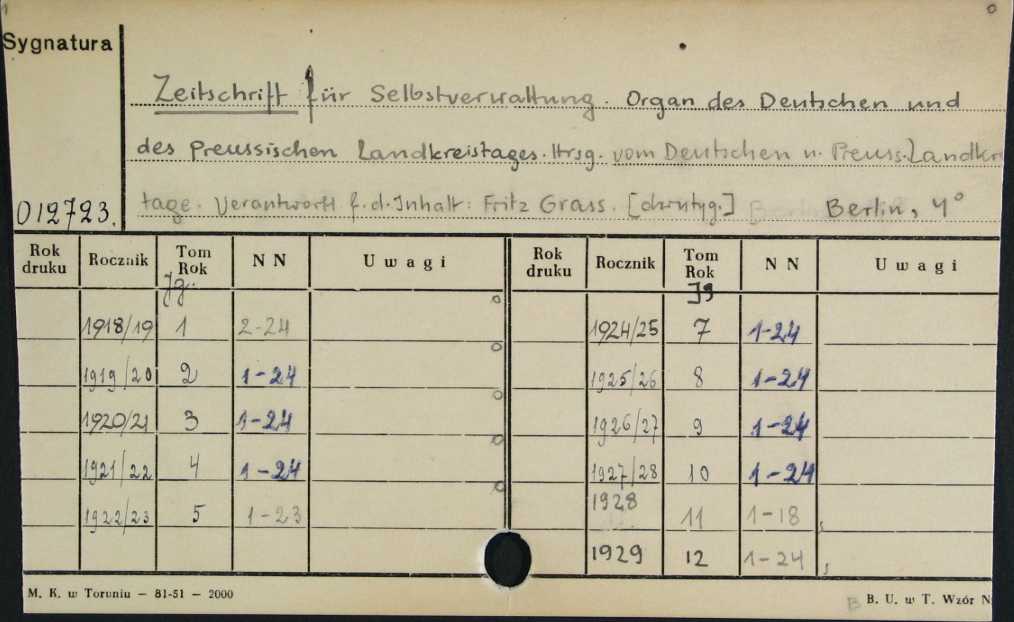 Sygnatura
Zeitschrift für Selbstverwaltung. Organ des Deutschen und
des Preussischen Landkreistages. Hrsg. vom Deutschen u. Preuss. Landkreis
tage. Verantwortl. f. d. Inhalt: Fritz Grass. Berlin, 4°
012723.
Rok druku Rocznik Tom Rok NN Uwagi Rok druku Rocznik Tom Rok NN Uwagi
Jg. Jg
1918/19 1 2-24 1924/25 7 1-24
1919/20 2 1-24 1925/26 8 1-24
1920/21 3 1-24 1926/27 9 1-24
1921/22 4 1-24 1927/28 10 1-24
1922/23 5 1-23 1928 11 1-18,
1929 12 1-24,
M. K. w Toruniu — 81-51 — 2000 B B. U. w T. Wzór N